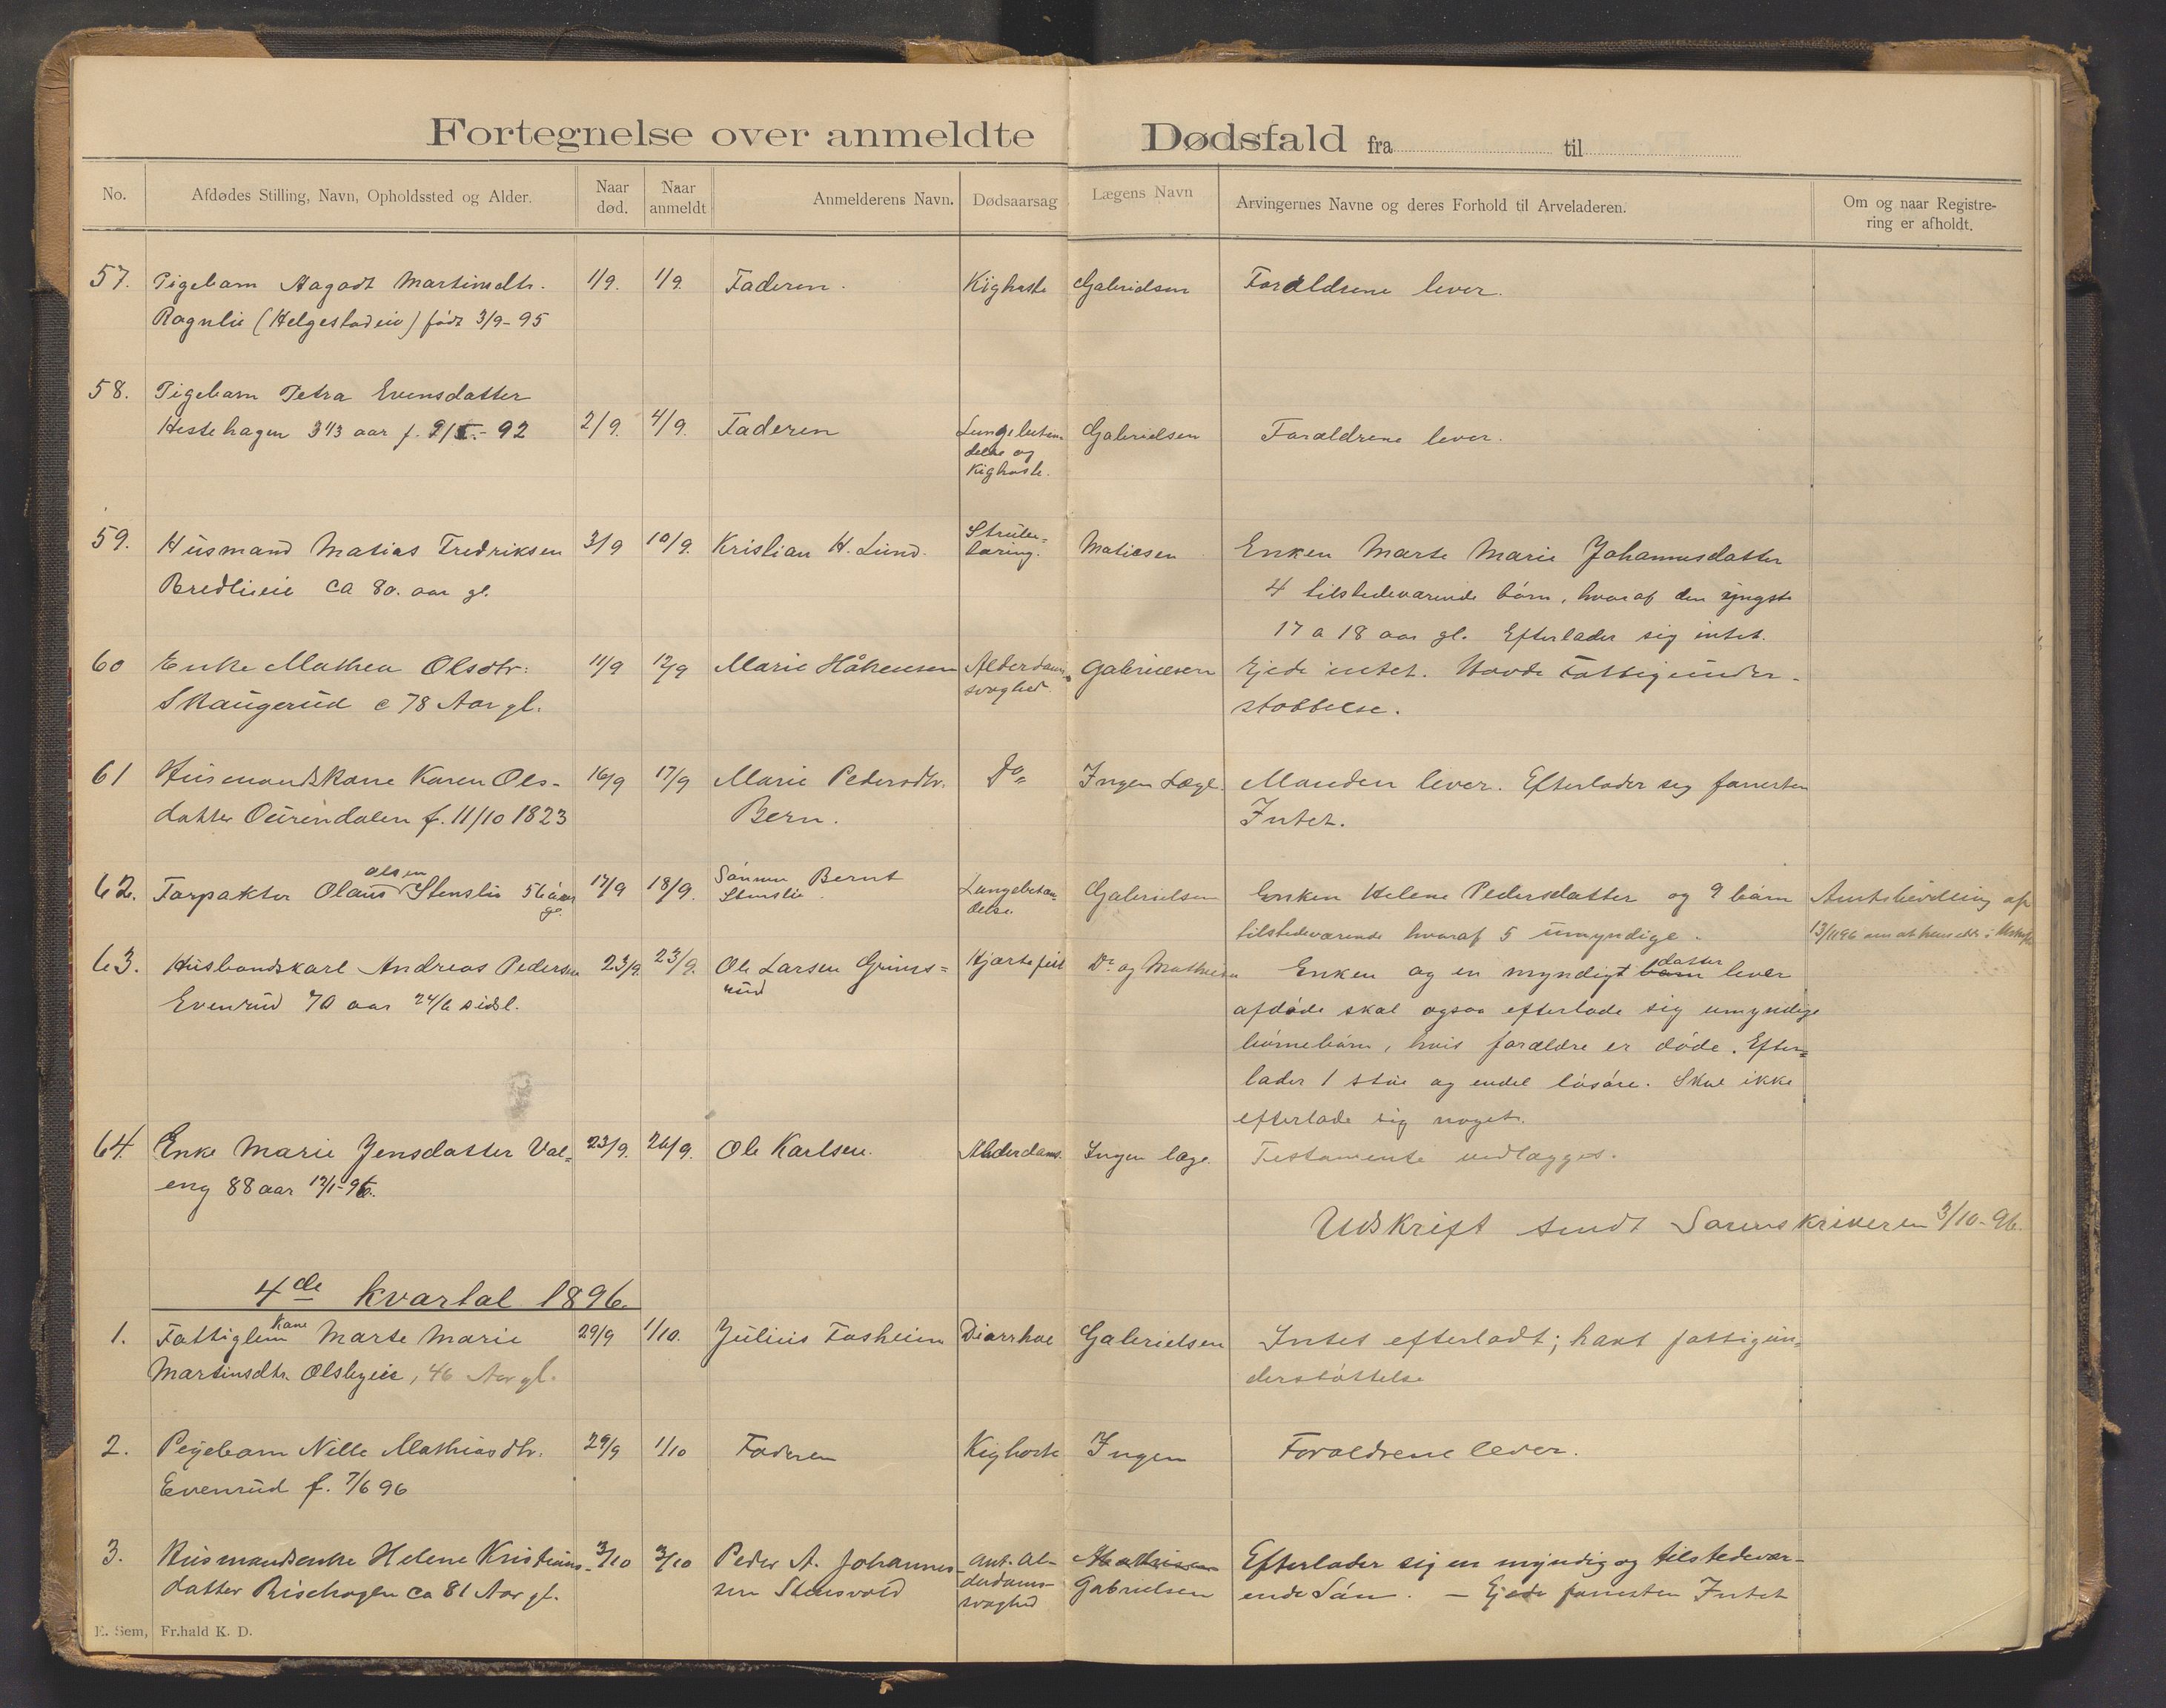 Fortegnelse over anmeldte Dødsfald fra til
No. Afdødes Stilling, Navn, Opholdssted og Alder. Naar død. Naar anmeldt Anmelderens Navn. Dødsaarsag Lægens Navn Arvingernes Navne og deres Forhold til Arveladeren. Om og naar Registrering er afholdt.
57. Pigebarn Aagodt Martinsdtr. 1/9. 1/9. Faderen. Kighoste Gabrielsen Forældrene lever.
Rognlie (Helgestadeie) født 3/9-95
58. Pigebarn Petra Evensdatter
Hestehagen 3 1/3 aar f. 2/5.-92 2/9. 4/9. Faderen Lungebetæn- Gabrielsen Forældrene lever.
delse og
Kighoste.
59. Husmand Matias Fredriksen 3/9 10/9. Kristian H. Lund. Matiesen Enken Marte Marie Johannesdatter
Bredlieeie ca 80. aar gl. 4 tilstedeværende børn, hvoraf den yngste
17 a 18 aar gl. Efterlader sig intet.
60 Enke Mathea Olsdtr. 11/9 12/9 Marie Håkensen Alderdoms- Gabrielsen Ejede intet. Havde Fattigunder-
Skaugerud c 78 Aar gl. svaghed støttelse.
61 Husmandskone Karen Ols- 16/9 17/9 Marie Pedersdtr. Do Ingen Læge. Manden lever. Efterlader sig foruresten
datter Ourendalen f. 11/10 1823 Bern. Intet.
62. Forpakter Olaus Olsen Stenslie 56 aar gl. 17/9 18/9. Sønnen Bernt Lungebetæn- Gabrielsen Enken Helene Pedersdatter og 9 børn
Stenslie. delse. tilstedeværende hvoraf 5 umyndige.
13/11 96
63. Husbondskarl Andreas Pedersen 23/9. 23/9. Ole Larsen Grims- Hjertefeil Dr. og Mathiesen Enken og en myndigt barn datter lever
Evenrud 70 aar 24/6 sidstl. rud afdøde skal ogsaa efterlade sig umyndige
børnebørn, hvis forældre er døde. Efter-
lader 1 stue og endel løsøre. Skal ikke
efterlade sig noget.
64. Enke Marie Jensdatter Val- 23/9. 26/9. Ole Karlsen. Alderdoms. Ingen læge. Testamente vedlægges.
eng 88 aar 12/1-96.
Udskrift sendt Sorenskriveren 3/10-96.
4de kvartal 1896.
1. Fattiglem Kone Marte Marie 29/9 1/10. Julius Fosheim Diarrhoe Gabrielsen Intet efterladt; havt fattigun-
Martinsdtr. Olsbyeie, 46 Aar gl. derstøttelse
2. Pigebarn Nille Mathiasdtr. 29/9 1/10 Faderen Kighoste Ingen Forældrene lever.
Evenrud f. 7/6 96
3. Husmandsenke Helene Kristians- 3/10 3/10 Peder A. Johannes- Ant. Al- Mathiesen Efterlader sig en myndig og tilstedevær-
datter Risehagen ca 81 Aar gl. sen Stensvold derdoms- Gabrielsen ende Søn. - Ejede foruresten Intet
svaghed
E. Sem, Fr.hald K. D.